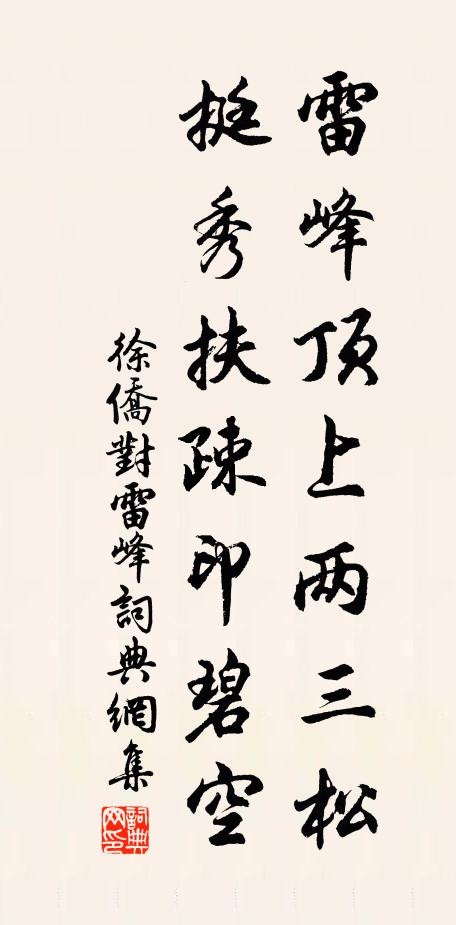 雷峰顶上两三松
挺秀扶疎印碧空
徐僑對雷峰詞典網集
詞典网印